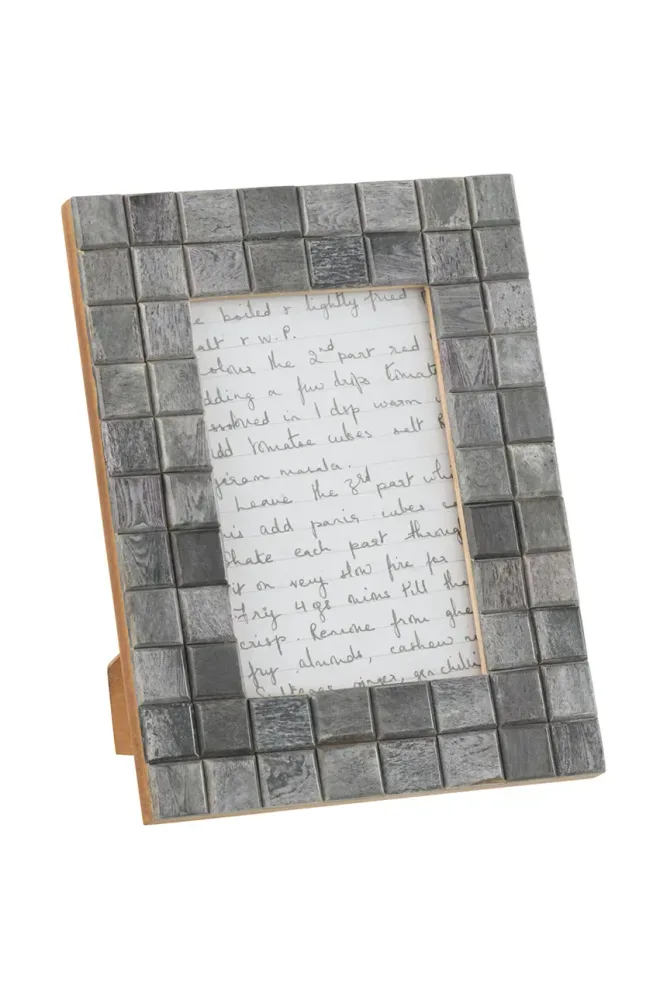 e boiled & lightly fried
alt & W.P.
olour the 2nd part red
dding a few drops tomat
ssolved in 1 dsp warm
dd tomatoe cubes salt
garam masala.
Leave the 3rd part whi
is add panir cubes
hake each part throug
it on very slow fire for
Fry 4 qs mins till the
crisp. Remove from ghe
fry almonds, cashew n
Sultanas, ginger, green chilli